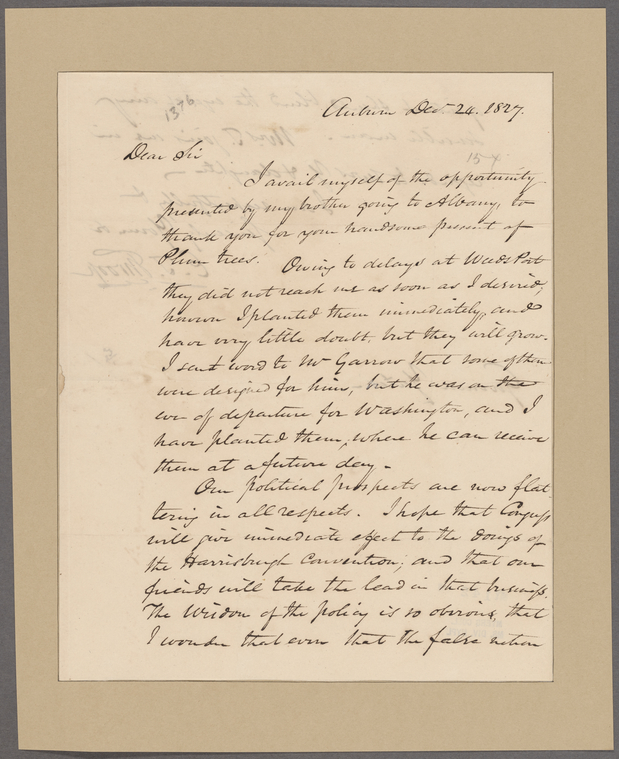 Auburn Decr 24. 1827.
1376
Dear Sir
154
I avail myself of the opportunity
presented by my brother going to Albany, to
thank you for your handsome present of
Plum trees. Owing to delays at Weeds Port
they did not reach me as soon as I desired,
however I planted them immediately, and
have very little doubt, but they will grow.
I sent word to Mr Garrow that some of them
were designed for him, but he was on the
eve of departure for Washington, and I
have planted them, where he can receive
them at a future day.
Our political prospects are now flat-
tering in all respects. I hope that Congress
will give immediate effect to the doings of
the Harrisburgh Convention; and that our
friends will take the lead in that business.
The Wisdom of the policy is so obvious, that
I wonder that even that the false notion